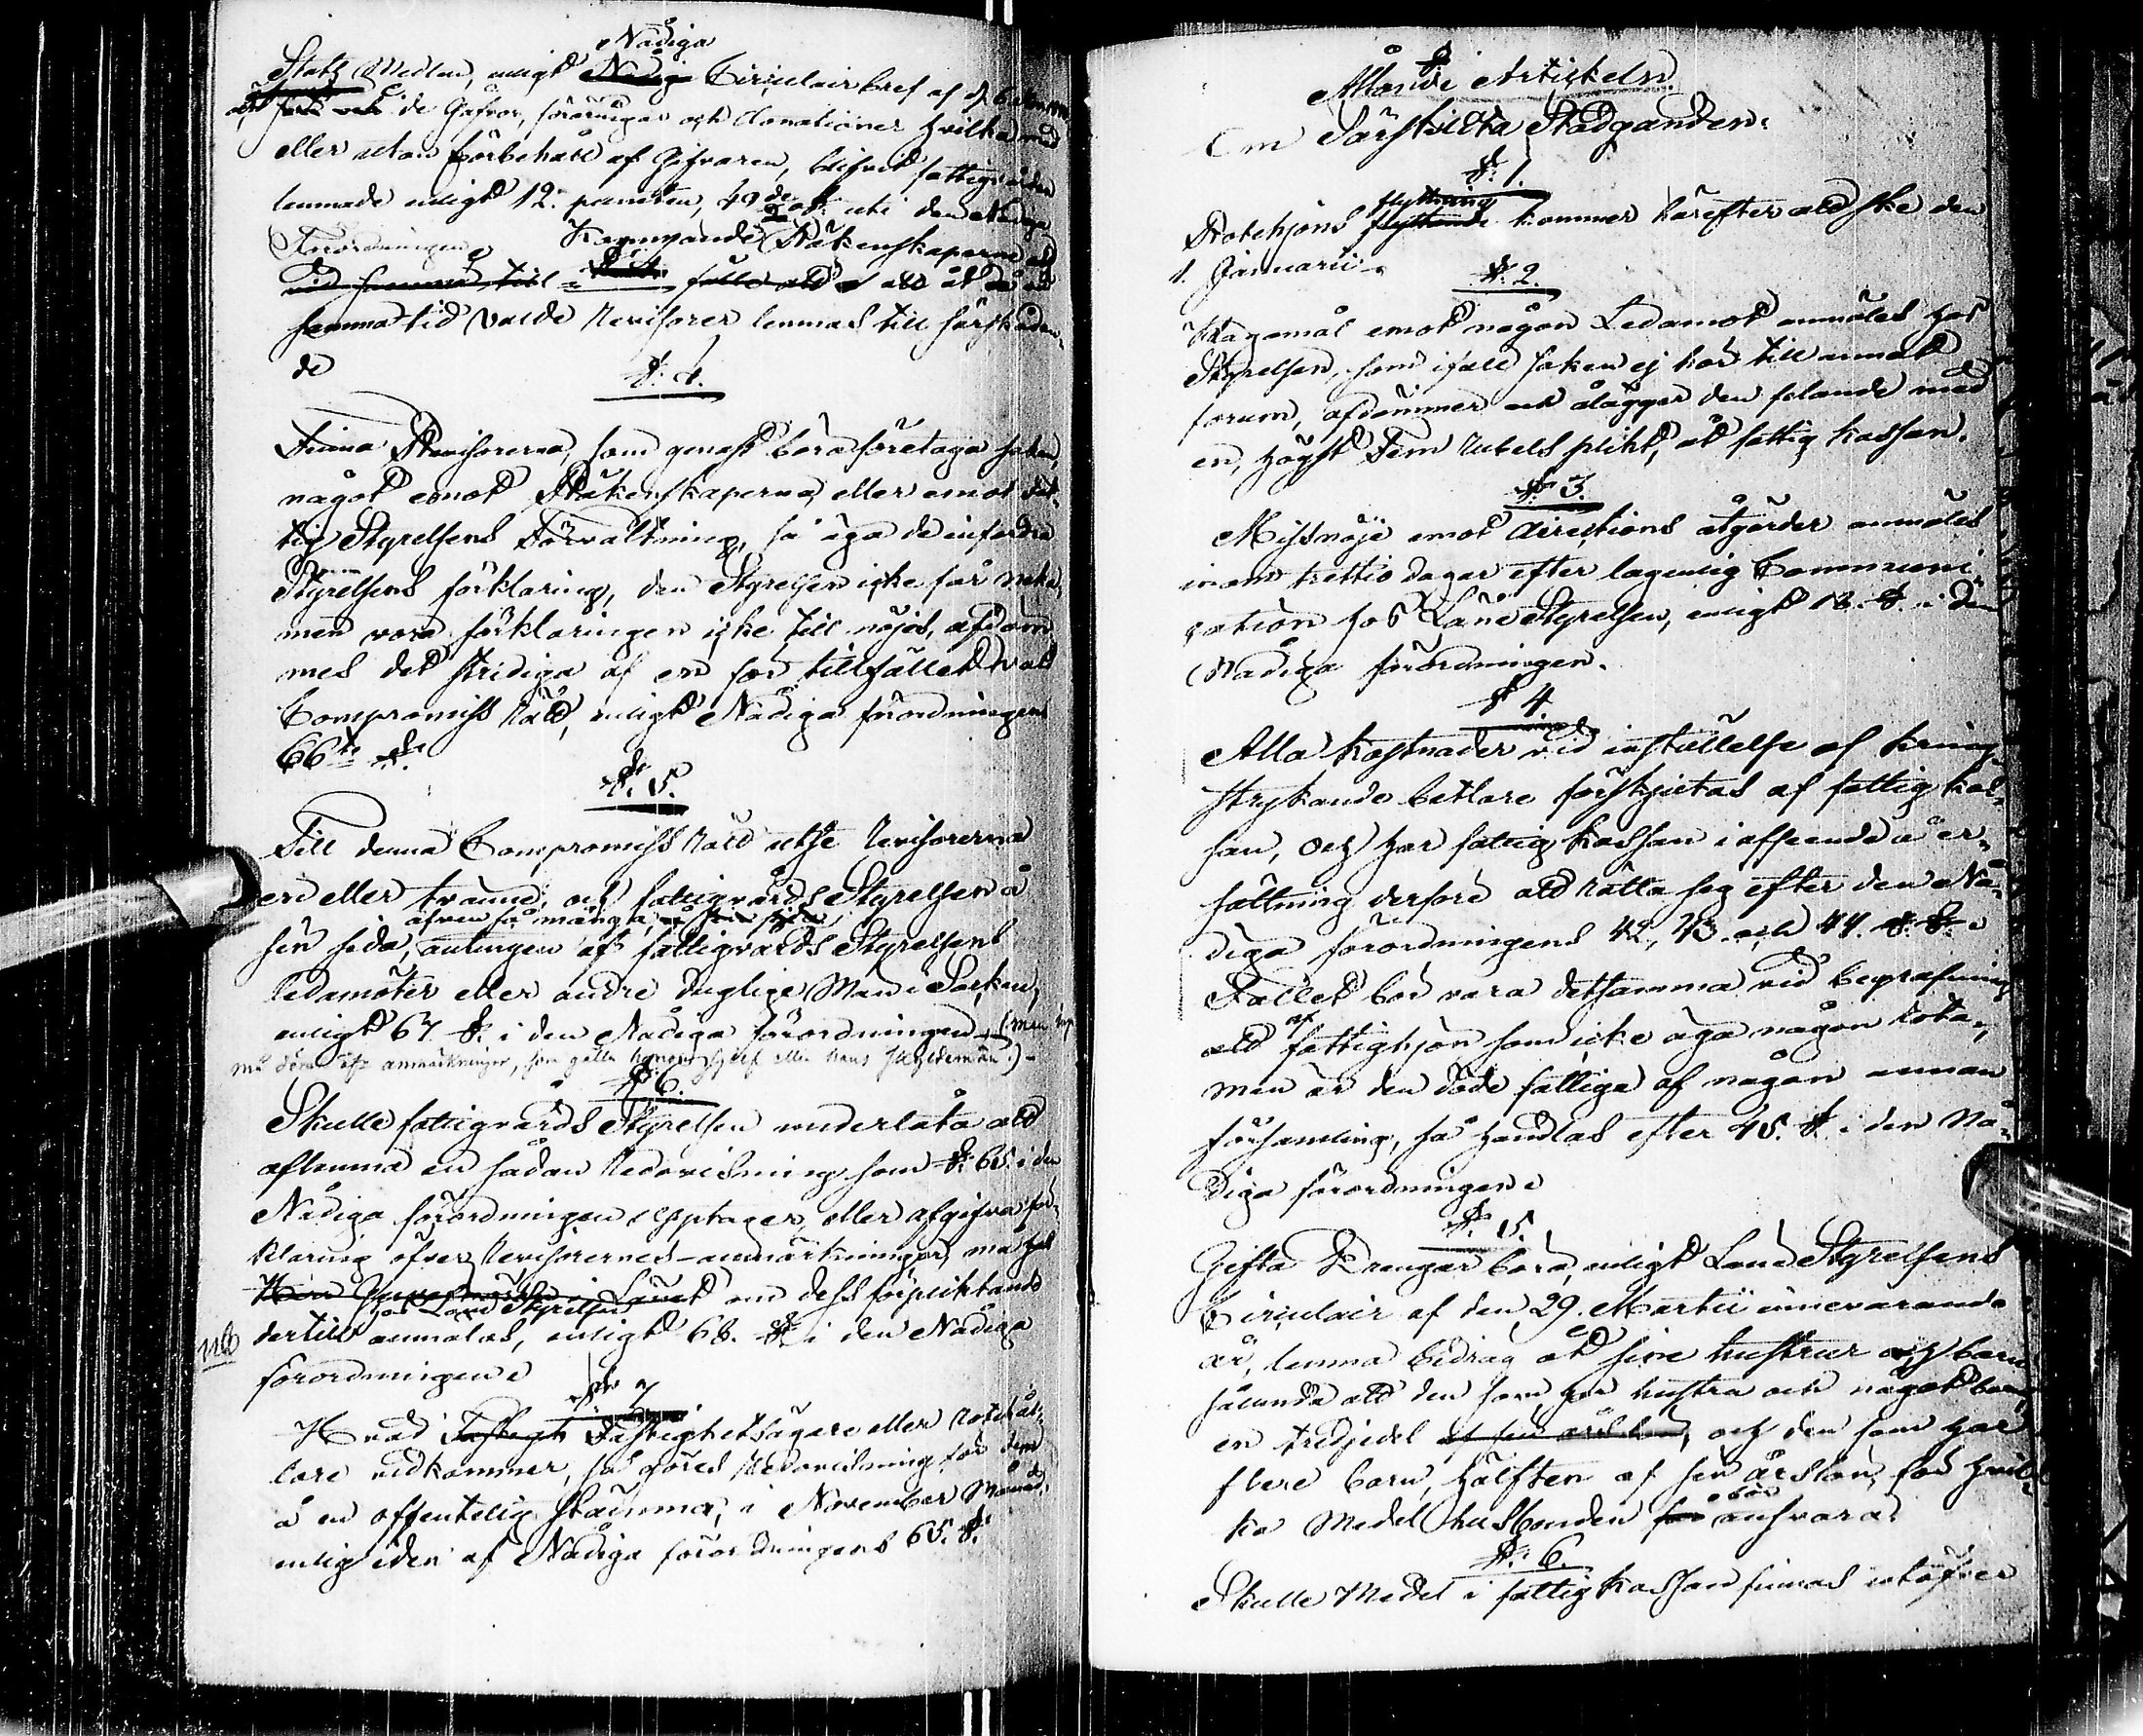 Nådiga
Stats Medlen, enligt Nådiga Circulairbref af d. 6
de Gåfvor, föräringar och Donationer hvilka med
eller utan förbehåll af Gifvaren, blifvit fattigvården
lemnade enligt 12. puncten, 49de §. uti den Nådiga
Förordningen. Kommande Räkenskaperne att
vid samma tid
samma tid valde Revisorer lemnas till förskådan-
de
§. 4.
Finna Revisorerna, som genast böra företaga saken,
något emot Räkenskaperna eller emot Fat-
tig Styrelsens Förvaltning, så äga de infordra
Styrelsens förklaring, den Styrelsen icke får neka,
men vore förklaringen icke till nöjes, afdöm-
mes det stridiga af en för tillfället vald
Compromiss Rätt, enligt Nådiga förordningens
66te §.
§. 5.
Till denna Compromiss Rätt utse Revisorerna
en eller tvänne, och fattigvårds Styrelsen å
äfven så många, å sin sida,
sin sida, antingen af fattigvårds Styrelsens
ledamöter eller andre duglige Män i Socken,
enligt 67 §. i den Nådiga förordningen (men
må döma öfver anmärkningar, som gälla honom sjelf eller hans skyldemän.)
§. 6.
Skulle fattigvårds Styrelsen underlåta att
aflemna en sådan Redovisning som §. 65. i den
Nådiga förordningen upptager, eller afgifva för-
klaring öfver Revisorernes anmärkningar, må hos
Herr Guvernören i Länet om dess förpliktande
hos Lands Styrelsen
dertill anmälas, enligt 68. §. i den Nådiga
NB
förordningen
§. 7.
Hvad Fastighetsägare eller
lare vidkommer, så göres Redovisning för dem
å en offentelig stämma, i November Månad,
enlig iden af Nådiga förordningens 65. §.
Åttonde Artikeln
Om Särskildta Stadganden.
§. 1.
flyttning
Rotehjons flyttande kommer härefter att ske den
1. Januarii.
§. 2.
Klagomål emot någon Ledamot anmäles hos
Styrelsen, som ifall saken ej hör till annat
forum, afdömmer och ålägger den felande med
en, högst Fem Rubels plikt, åt fattig kassan.
§. 3.
Missnöje emot Directions åtgärder anmäles
inom trettio dagar efter lagenlig Communi-
cation hos Lands Styrelsen, enligt 13. §. i den
Nådiga förordningen.
§. 4.
Alla kostnader vid inställelse af kring-
strykande betlare förskjutas af fattig kas-
san, och har fattig kassan i afseende å er-
sättning derföre att rätta sig efter den Nå-
diga förordningens 42, 43. och 44. §. §.
Fallet bör vara detsamma vid begrafning
af
att fattighjon som icke äga någon rota,
men är den döde fattiga af någon annan
församling, så handlas efter 45. §. i den Nå-
diga förordningen
§. 5.
Gifta Drengar böra, enligt Lands Styrelsens
Circulair af den 29. Martii innevarande
år, lemna bidrag åt sine hustrur och barn
sålunda att den som har hustru och något barn,
en tredjedel af sin årslön, och den som har
flere barn, hälften af sin årslön, för hvil-
bör
ka Medel husbonden får ansvara.
§. 6.
Skulle Medel i fattig kassan finnas utöfver